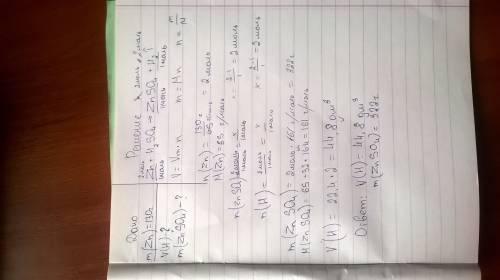 Дано
m(Zn)=130г
V(H)-?
m(ZnSO4)-?
Решение
2моль
Zn + H2SO4 → ZnSO4 + H2↑
1моль 1моль 1моль
V = Vm·n m = Mn n = m/M
n(Zn) = 130г / 65 г/моль = 2 моль
M(Zn) = 65 г/моль
n(ZnSO4) 2моль/1моль = x/1моль = 2·1/1 = 2моль
n(H) = 2моль/1моль = x/1моль x = 2·1/1 = 2моль
m(ZnSO4) = 2моль · 161 г/моль = 322г
M(ZnSO4) = 65+32+16·4 = 161 г/моль
V(H) = 22.4·2 = 44,8 дм³
Ответ: V(H) = 44,8 дм³
m(ZnSO4) = 322г